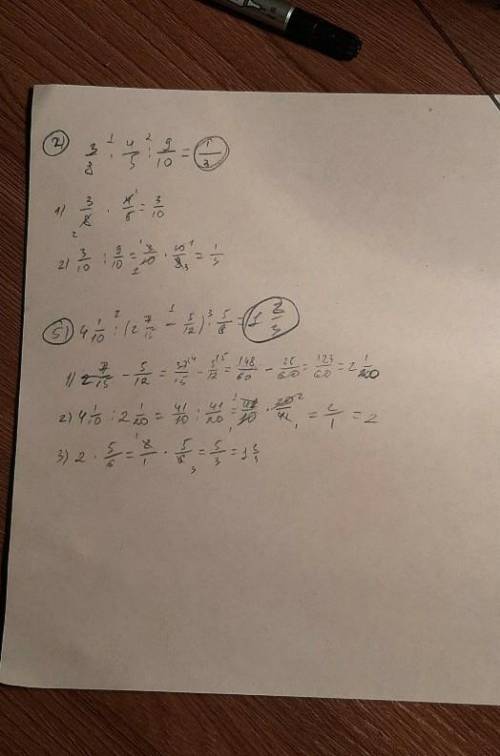 2) 3/8 : 4/5 : 9/10 = 1/3
1) 3/8 · 4/5 = 3/10
2) 3/10 : 9/10 = 3/10 · 10/9 = 1/3
5) 4 1/10 : (2 7/15 - 5/12) · 5/6 = 1 2/3
1) 2 7/15 - 5/12 = 37/15 - 5/12 = 148/60 - 25/60 = 123/60 = 2 1/20
2) 4 1/10 : 2 1/20 = 41/10 : 41/20 = 41/10 · 20/41 = 2/1 = 2
3) 2 · 5/6 = 2/1 · 5/6 = 5/3 = 1